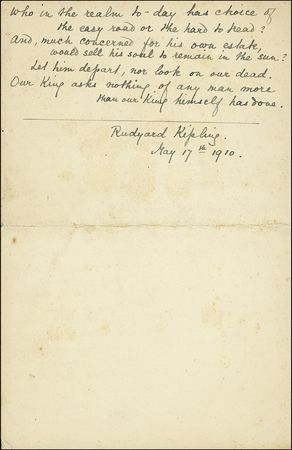 Who in the realm to-day has choice of
the easy road or the hard to tread?
And, much concerned for his own estate,
would sell his soul to remain in the sun?
Let him depart, nor look on our dead.
Our King asks nothing of any man more
than our King himself has done.
Rudyard Kipling.
May 17th 1910.